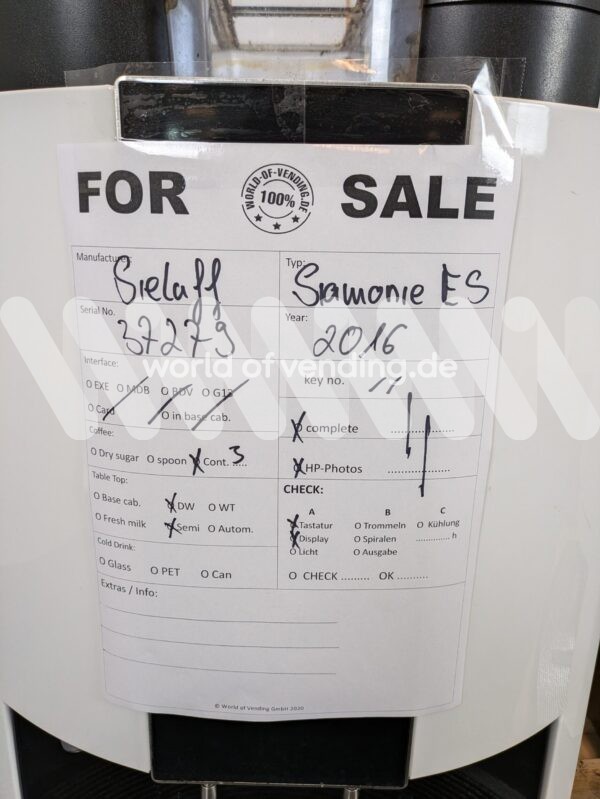 FOR SALE
WORLD-OF-VENDING.DE
100%
Manufacturer: Sielaff
Typ: Siamonie ES
Serial No. 37279
Year: 2016
world of vending.de
Interface:
key no.
O EXE O MDB O BDV O G13
O Card O in base cab.
O complete
Coffee:
O Dry sugar O spoon O Cont. 3
O HP-Photos
CHECK:
Table Top:
A B C
O Base cab. O DW O WT
O Tastatur O Trommeln O Kühlung
O Fresh milk O Semi O Autom.
O Display O Spiralen h
O Licht O Ausgabe
Cold Drink:
O Glass O PET O Can
O CHECK ......... OK ..........
Extras / Info:
© World of Vending GmbH 2020